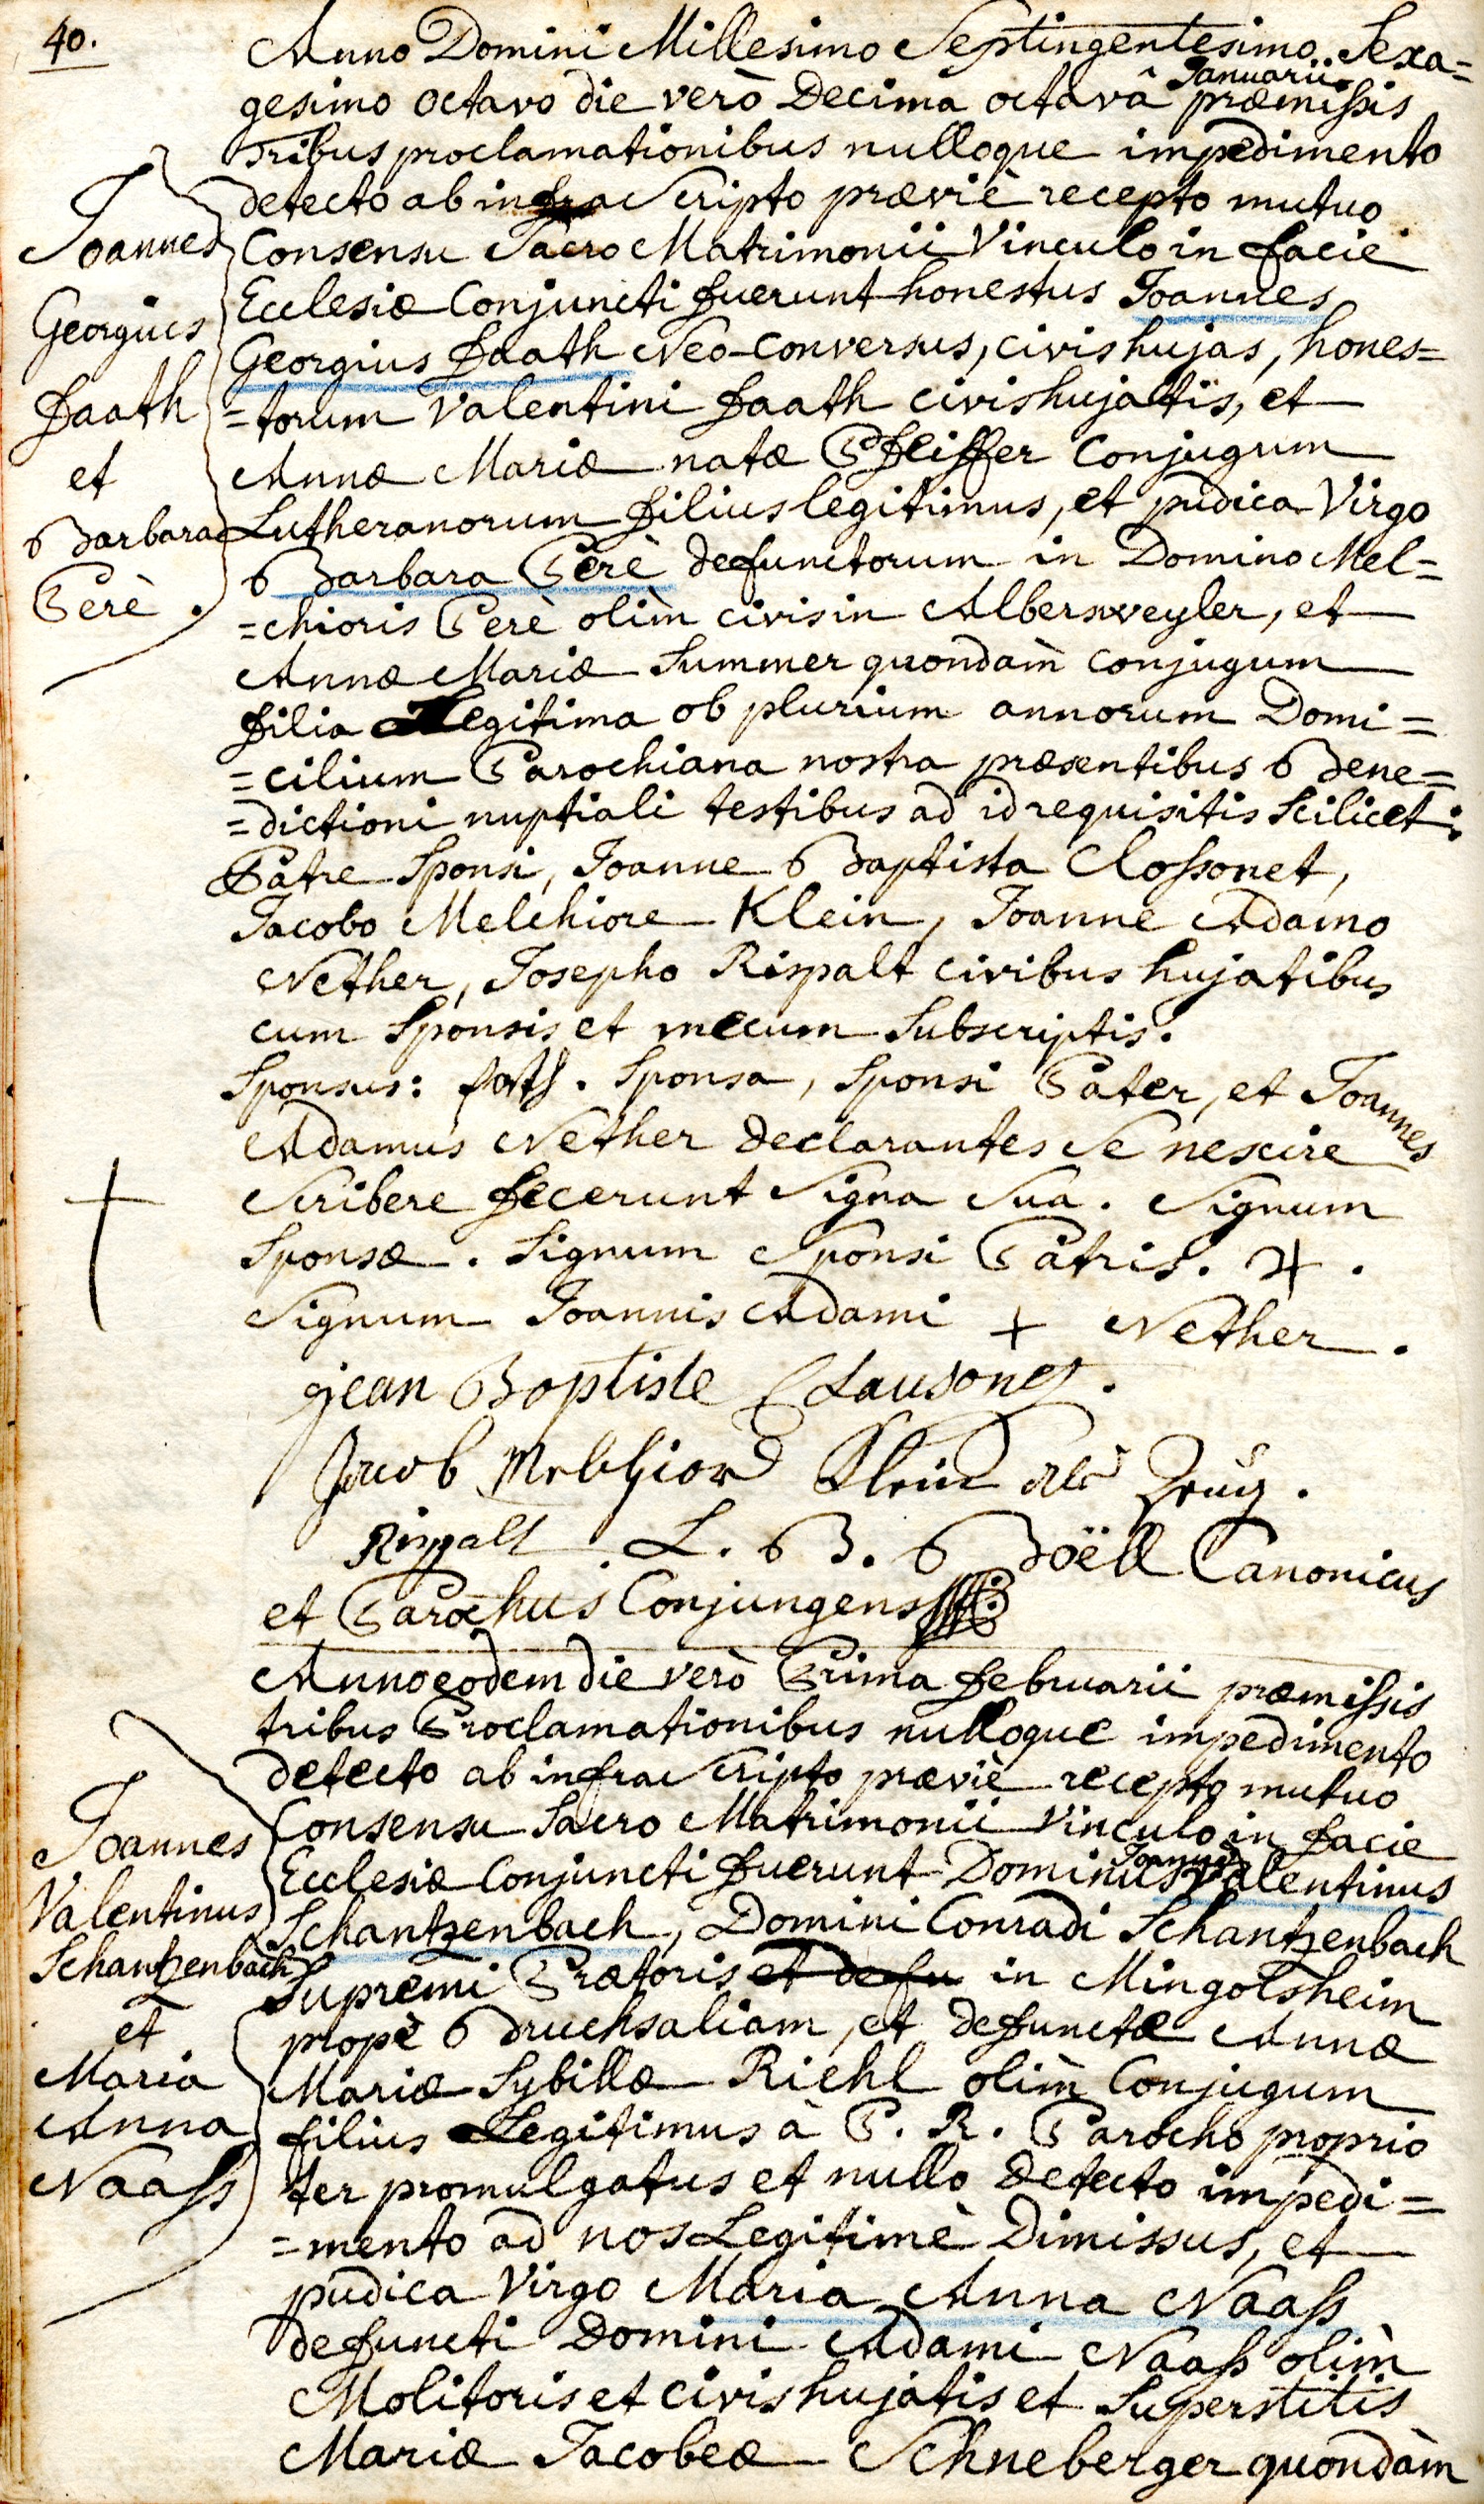 40.
Anno Domini Millesimo Septingentesimo Sexa=
gesimo octavo die verò Decima octavâ Januarii præmissis
Tribus proclamationibus nulloque impedimento
detecto ab infra Scripto præviè recepto mutuo
Consensu Sacro Matrimonii Vinculo in facie
Ecclesiæ Conjuncti fuerunt honestus Joannes
Georgius faath Neo-conversus, civis hujas, hones=
=torum Valentini faath civis hujatis, et
Annæ Mariæ natæ Pfeiffer Conjugum
Lutheranorum filius legitimus, et pudica Virgo
Barbara Perè defunctorum in Domino Mel=
=chioris Perè olim civis in Albersweyler, et
Annæ Mariæ Summer quondàm conjugum
filia Legitima ob plurium annorum Domi=
=cilium Parochiana nostra præsentibus Bene=
=dictioni nuptiali testibus ad id requisitis scilicet:
Patre Sponsi, Joanne Baptista Clossonet,
Jacobo Melchiore Klein, Joanne Adamo
Nether, Josepho Rispalt civibus hujatibus
cum Sponsis et mecum Subscriptis.
Sponsus: fath. Sponsa, Sponsi Pater, et Joannes
Adamus Nether declarantes Se nescire
Scribere fecerunt Signa Sua. Signum
Sponsæ. Signum Sponsi Patris.
Signum Joannis Adami + Nether.
jean Baptiste Clausonet.
Jacob Melchior Klein als Zeug.
Rispalt. L. B. Boëll Canonicus
et Parochus Conjungens
Joannes
Georgius
faath
et
Barbara
Perè.
Anno eodem die verò Prima februarii præmissis
tribus Proclamationibus nulloque impedimento
detecto ab infra Scripto præviè recepto mutuo
Consensu Sacro Matrimonii Vinculo in facie
Ecclesiæ Conjuncti fuerunt Dominus Joannes Valentinus
Schantzenbach, Domini Conradi Schantzenbach
Supremi Prætoris et defu in Mingolsheim
propè Bruchsaliam, et defunctæ Annæ
Mariæ Sybillæ Riehl olìm Conjugum
filius Legitimus à P. R. Parocho proprio
ter promulgatus et nullo detecto impedi=
=mento ad nos Legitimè Dimissus, et
pudica Virgo Maria Anna Naass
defuncti Domini Adami Naass olìm
Molitoris et civis hujatis et Superstitis
Mariæ Jacobeæ Schneberger quondàm
Joannes
Valentinus
Schantzenbach
et
Maria
Anna
Naass